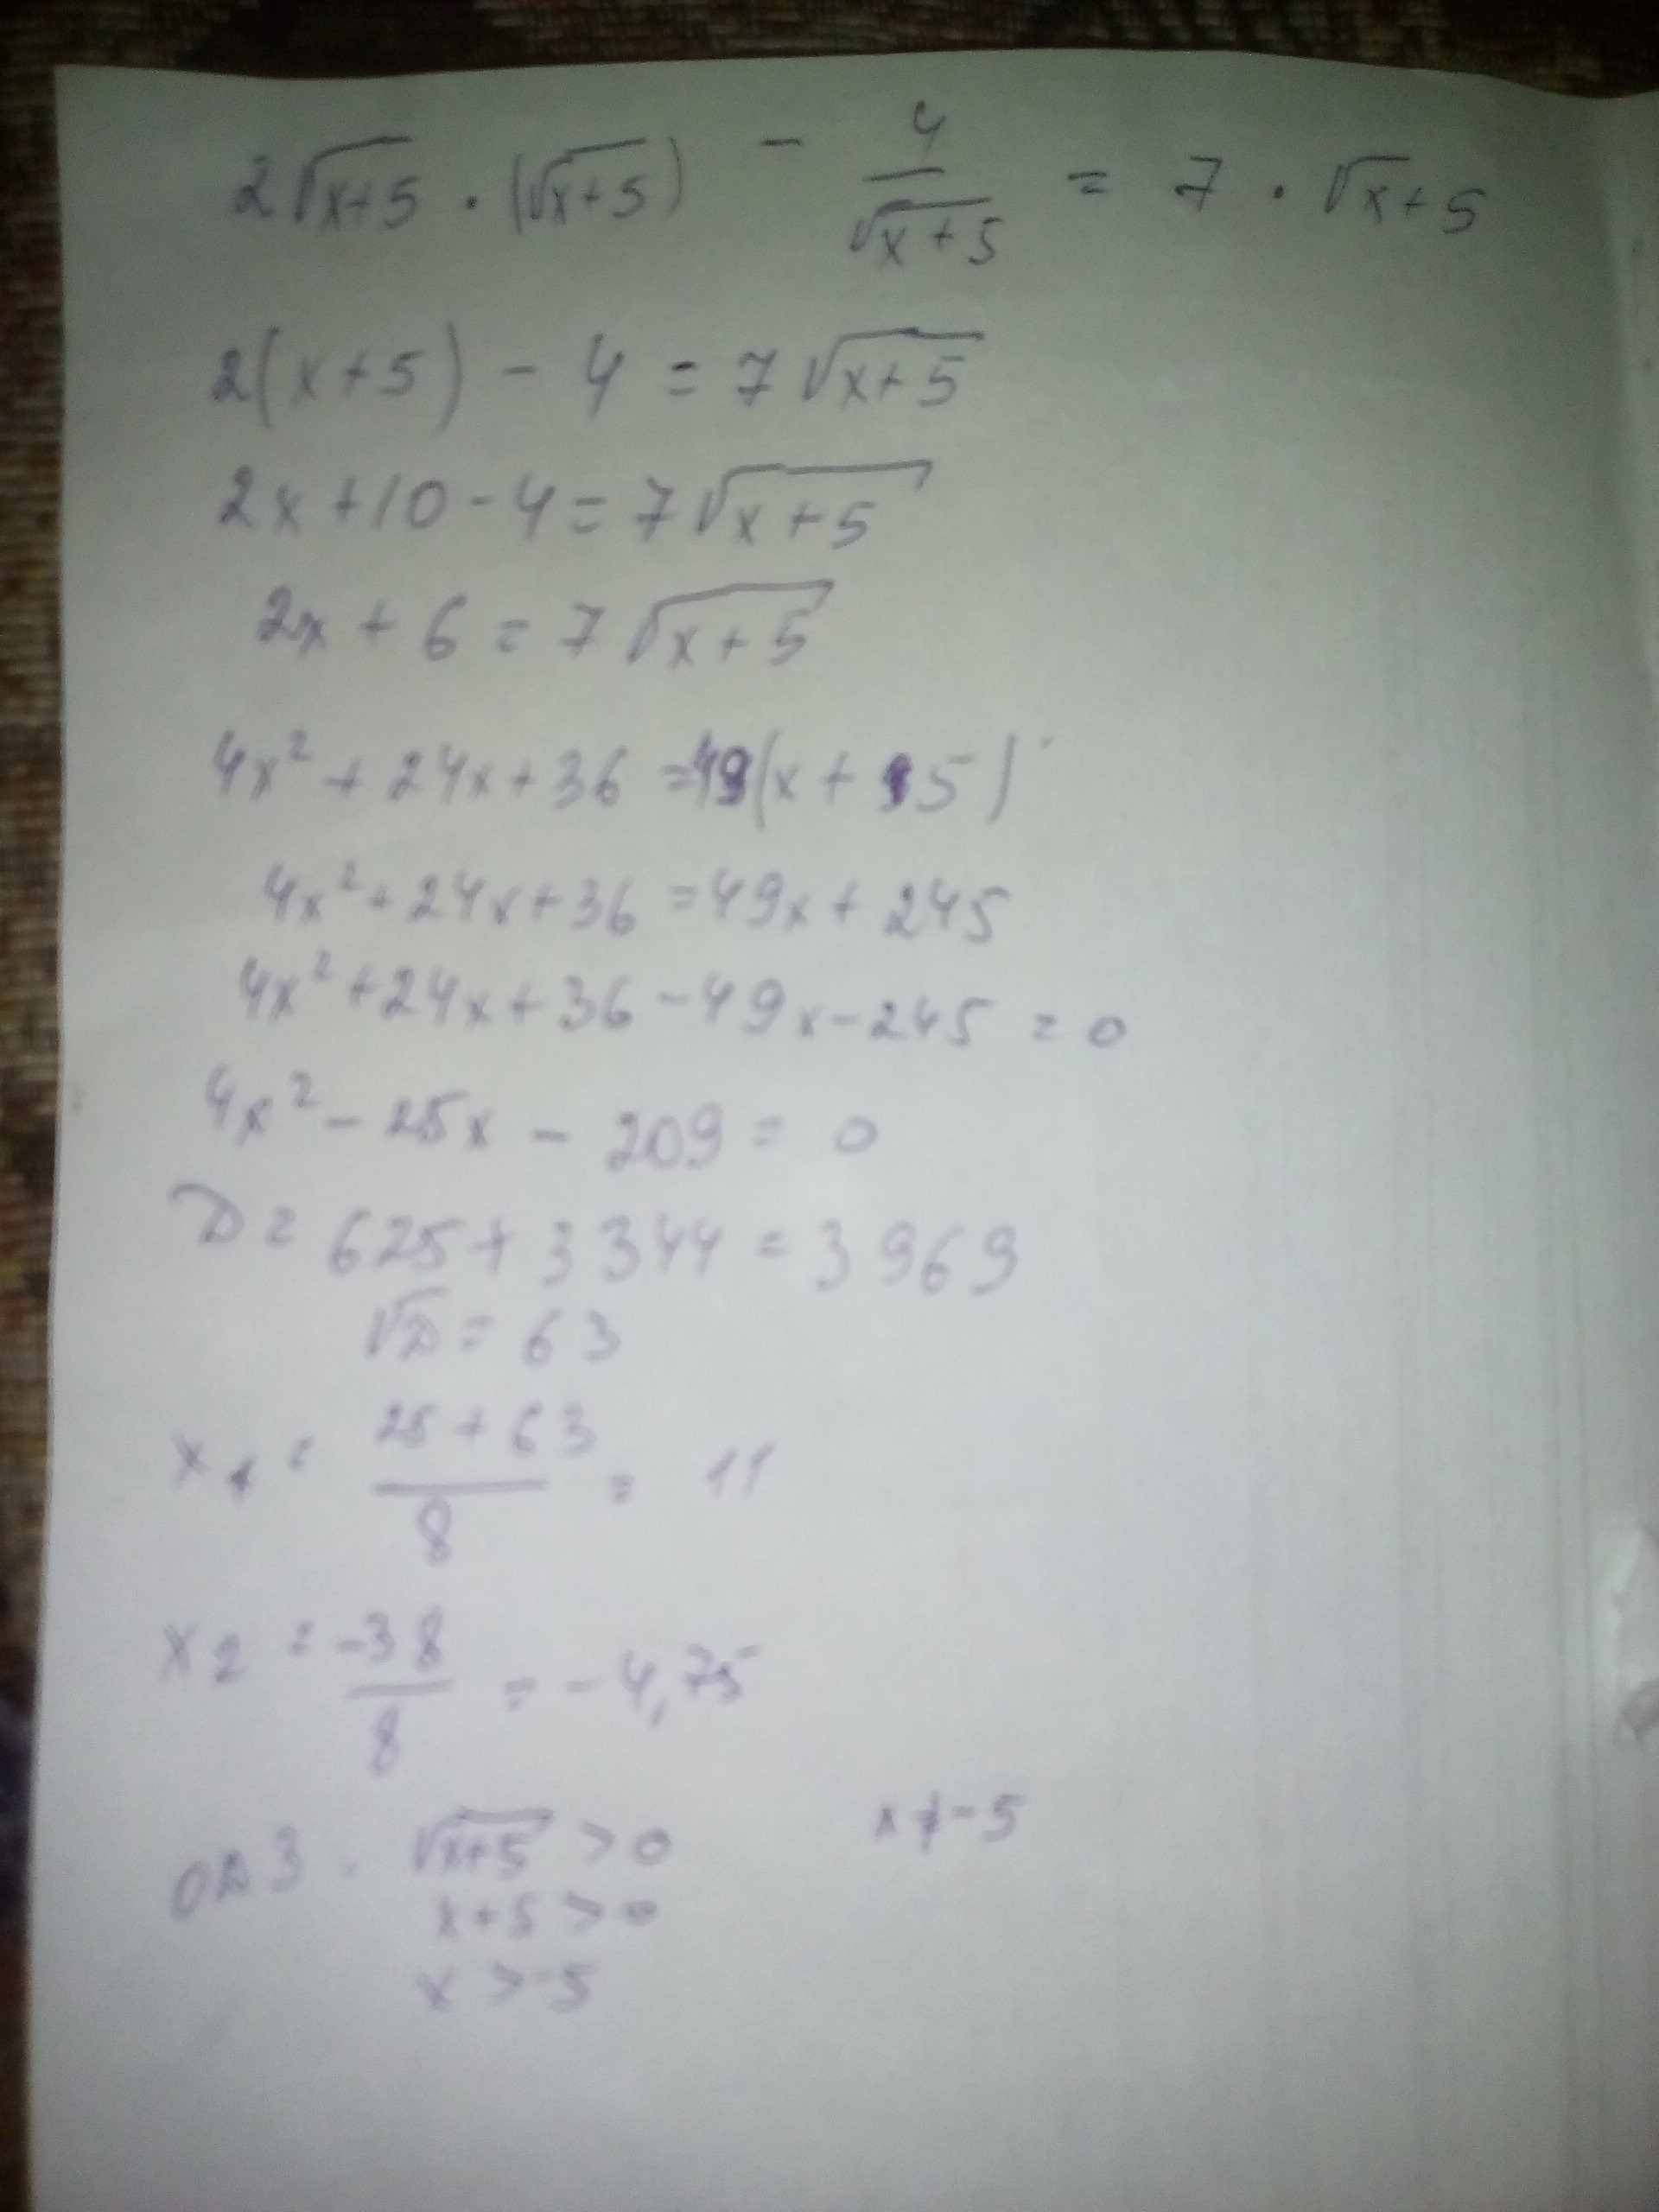 2√x+5 · (√x+5) - 4/√x+5 = 7 · √x+5
2(x+5) - 4 = 7√x+5
2x+10-4=7√x+5
2x + 6 = 7√x+5
4x² + 24x+36 =49(x + 5)
4x²+24x+36 =49x+ 245
4x²+24x+36-49x-245 = 0
4x² - 25x - 209 = 0
D = 625+3344 = 3969
√D = 63
x₁ = 25+63/8 = 11
x₂ = -38/8 = -4,75
ОДЗ. √x+5 > 0 x≠-5
x+5 > 0
x >-5